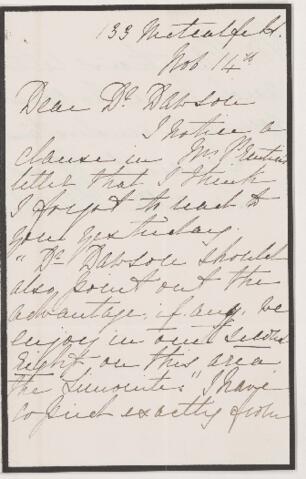 133 Metcalfe St.
Nov. 14th
Dear Dr Dawson
I notice a
clause in Mr
letter that I think
I forgot to read to
you yesterday.
"Dr Dawson should
also point out the
advantage, if any, we
enjoy in our
Eight on this area
the
copied exactly from